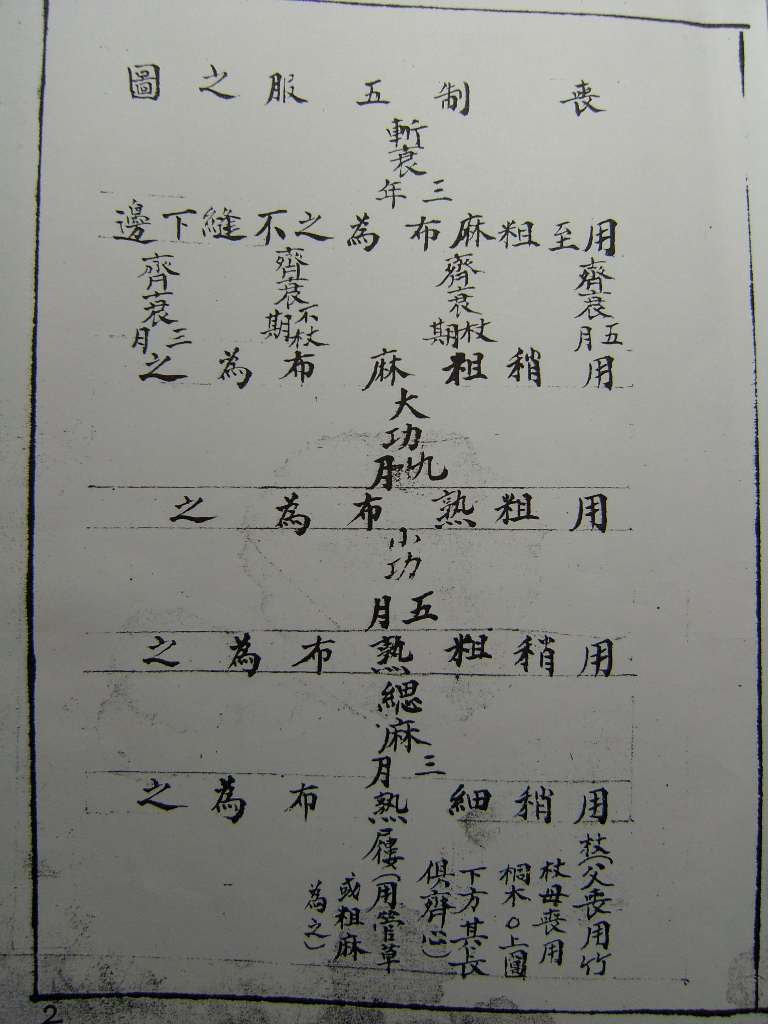 喪制五服之圖
斬衰三年
用至粗麻布為之不縫下邊
齊衰五月
齊衰杖期
齊衰不杖期
齊衰三月
用稍粗麻布為之
大功九月
用粗熟布為之
小功五月
用稍粗熟布為之
緦麻三月
用稍細熟布為之
杖(父喪用竹
杖母喪用
桐木〇上圓
下方其長
俱齊心)
屨(用菅草
或粗麻
為之)
2